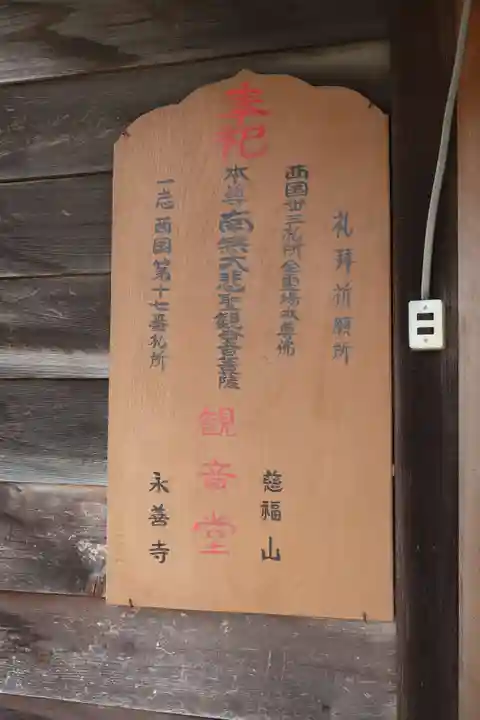 奉祀
礼拝祈願所
西国卅三札所全霊場本尊佛
本尊南無大悲聖観世音菩薩
一志西国第十七番札所
観音堂
慈福山
永善寺